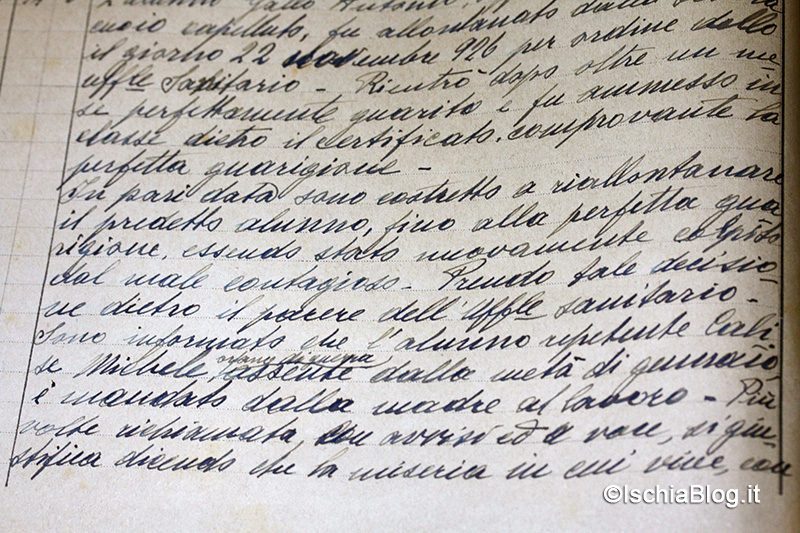 L'alunno Gallo Antonio,
cuoio capelluto, fu allontanato dalla
il giorno 22 novembre 926 per ordine dello
uffle Sanitario - Rientrò dopo oltre un me
se perfettamente guarito e fu ammesso in
classe dietro il certificato, comprovante la
perfetta guarigione -
In pari data sono costretto a riallontanare
il predetto alunno, fino alla perfetta gua
rigione, essendo stato nuovamente colpito
dal male contagioso - Prendo tale decisio
ne dietro il parere dell'Uffle sanitario -
Sono informato che l'alunno repetente Cali
se Michele, orfano di guerra, assente dalla metà di gennaio,
è mandato dalla madre al lavoro - Più
volte richiamata, con avvisi ed a voce, si giu-
stifica dicendo che la miseria in cui vive, con
©IschiaBlog.it